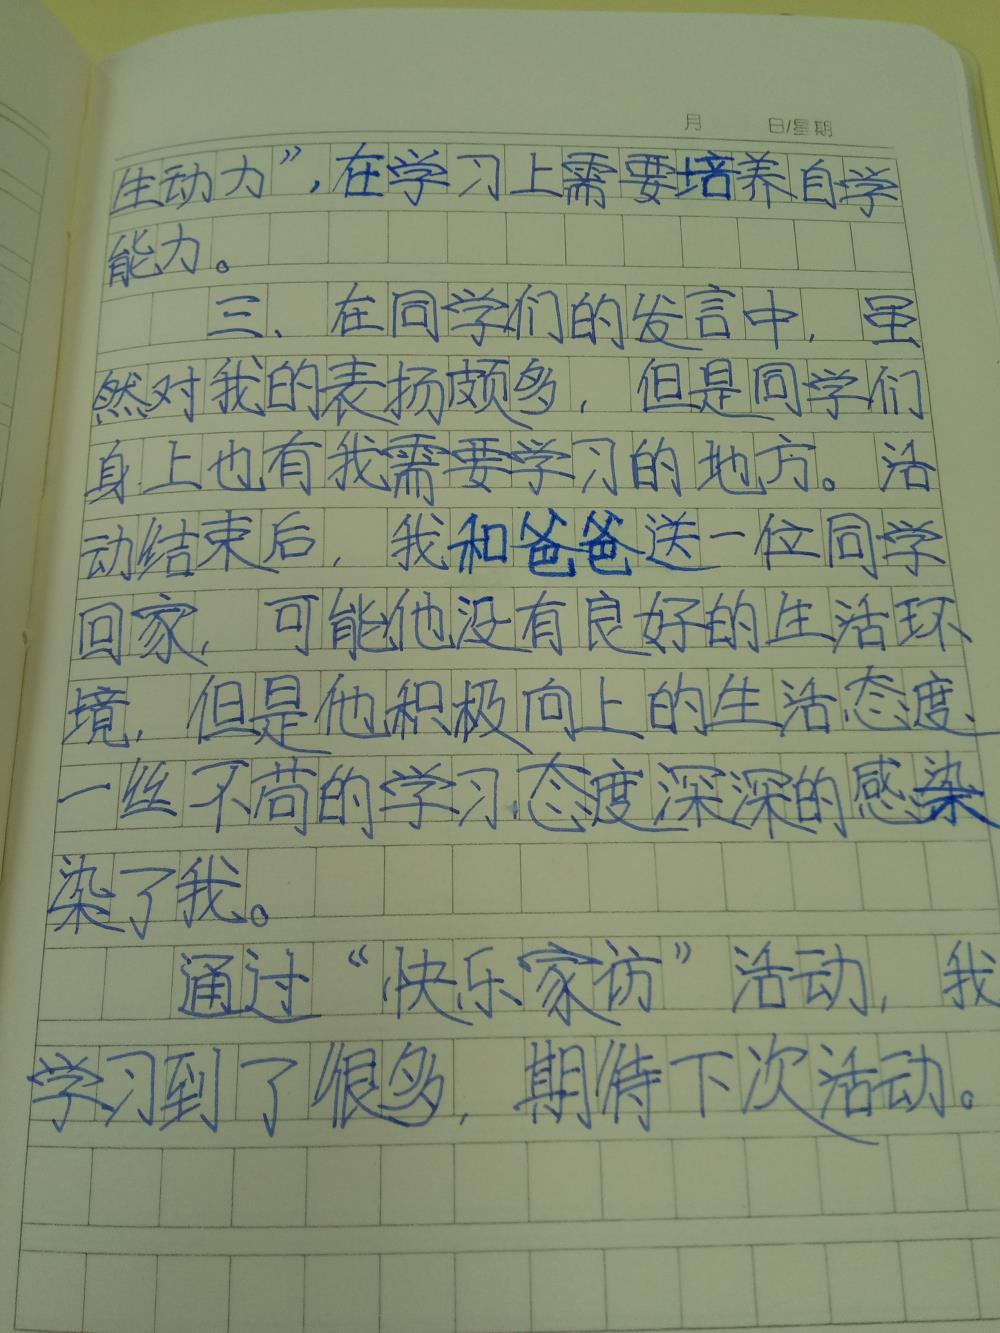 月 日/星期
生动力”,在学习上需要培养自学
能力。
三、在同学们的发言中，虽
然对我的表扬颇多，但是同学们
身上也有我需要学习的地方。活
动结束后，我和爸爸送一位同学
回家，可能他没有良好的生活环
境，但是他积极向上的生活态度、
一丝不苟的学习态度深深的感染
染了我。
通过“快乐家访”活动，我
学习到了很多，期待下次活动。